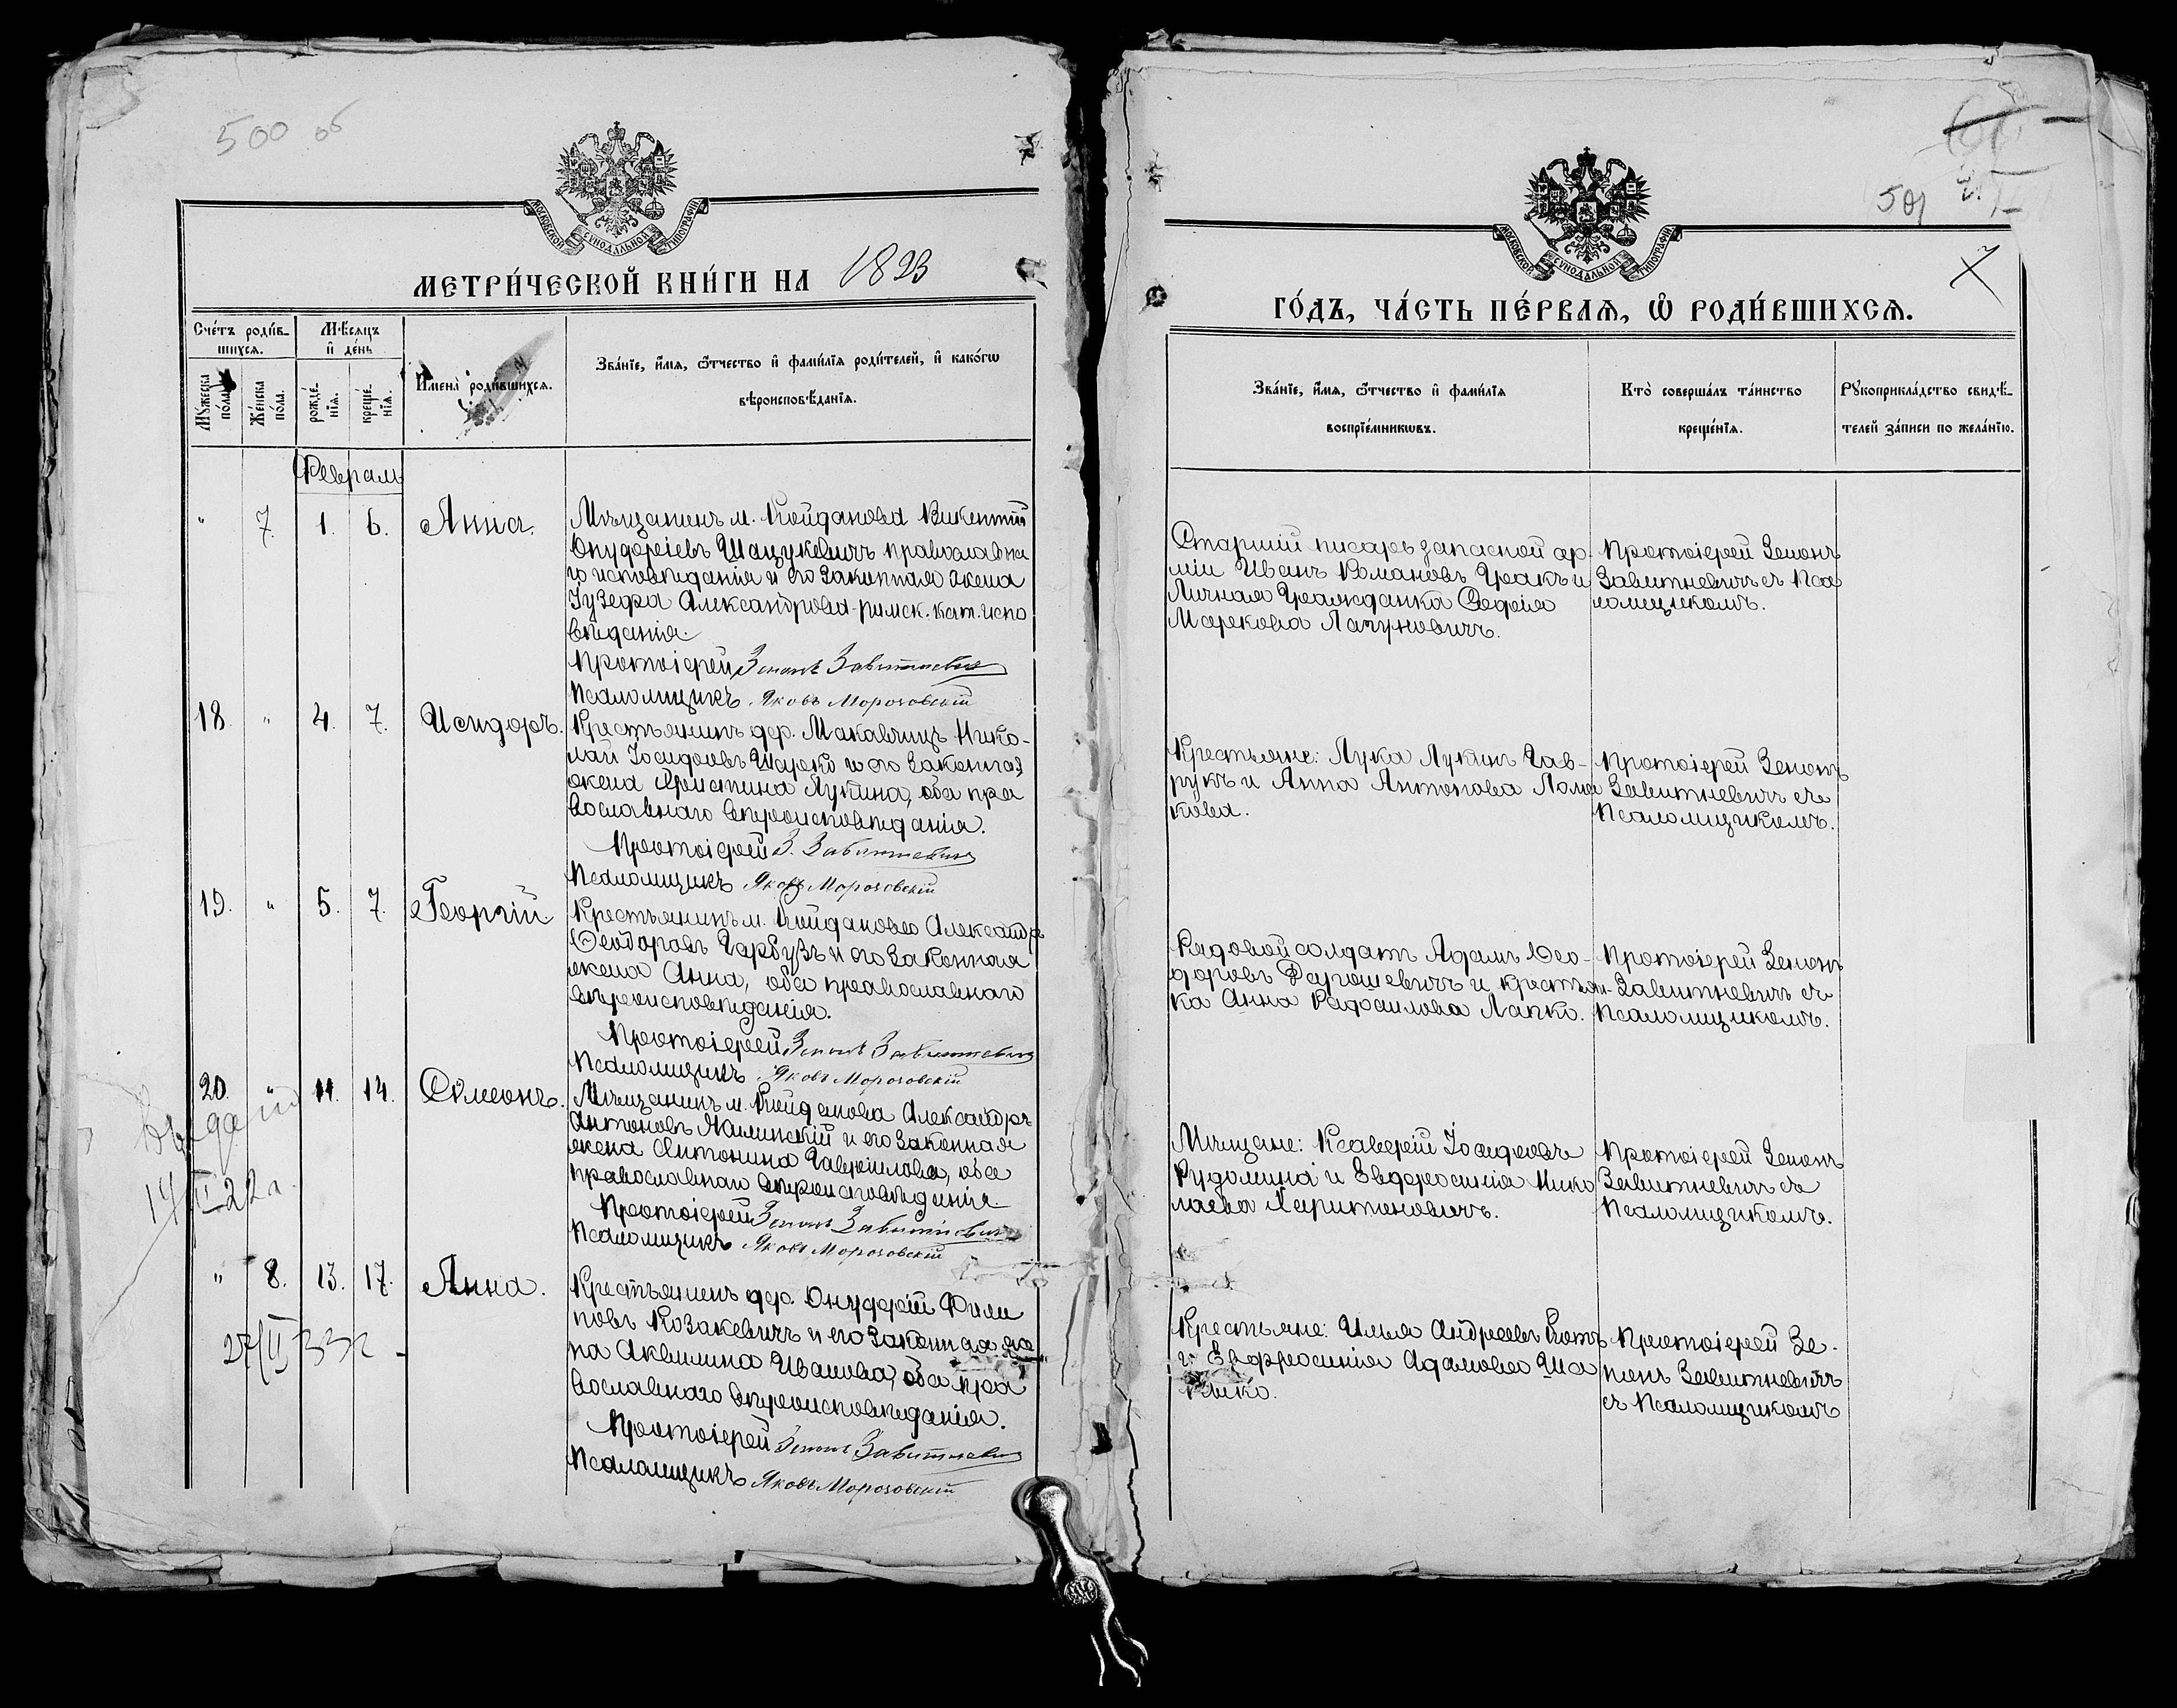 500 об
МОСКОВСКОЙ СУНОДАЛЬНОЙ ТИПОГРАФІИ
МЕТРИ́ЧЕСКОЙ КНИ́ГИ НА 1893
Сче́тъ роди́в-
шихся.
Мѣ́сяцъ
и҆ де́нь
Мꙋ́жеска
по́ла.
Же́нска
по́ла.
рожде́-
нїя.
креще́-
нїя.
И҆мена̀ роди́вшихся.
Зва́нїе, и҆́мя, ѻ҆́тчество и҆ фами́лїя роди́телей, и҆ како́гѡ
вѣроисповѣ́данїя.
Февраль
" 7. 1. 6. Анна.
Мѣщанинъ м. Койданова Викентій
Онуфріевъ Шацукевичъ православна
го исповѣданія и его законная жена
Іузефа Александрова римск. кат. испо
вѣданія.
Протоіерей Зенонъ Завитневичъ
Псаломщикъ Яковъ Морозовскій
18. " 4. 7. Исидоръ.
Крестьянинъ дер. Макавчицъ Нико-
лай Іосифовъ Шарко и его законная
жена Христина Лукина, оба пра
вославнаго вѣроисповѣданія.
Протоіерей З. Завитневичъ
Псаломщикъ Яковъ Морозовскій
19. " 5. 7. Георгій
Крестьянинъ м. Койданово Александръ
Ѳеодоровъ Гарбузъ и его законная
жена Анна, оба православнаго
вѣроисповѣданія.
Протоіерей Зенонъ Завитневичъ
Псаломщикъ Яковъ Морозовскій
20. " 11. 14. Сѷмеонъ.
Мѣщанинъ м. Койданова Александръ
Антоновъ и его законная
жена Антонина Гавріилова, оба
православнаго вѣроисповѣданія.
Протоіерей Зенонъ Завитневичъ
Псаломщикъ Яковъ Морозовскій
14/II 22 г.
" 8. 13. 17. Анна.
Крестьянинъ дер. Онуфрій Фили
повъ Козакевичъ и его законная же
на Аквилина Иванова, оба пра
вославнаго вѣроисповѣданія.
Протоіерей Зенонъ Завитневичъ
Псаломщикъ Яковъ Морозовскій
27/II 33 г
501
МОСКОВСКОЙ СУНОДАЛЬНОЙ ТИПОГРАФІИ
ГО́ДЪ, ЧА́СТЬ ПЕ́РВАЯ, Ѡ҆ РОДИ́ВШИХСЯ.
Зва́нїе, и҆́мя, ѻ҆́тчество и҆ фами́лїя
воспрїе́мникѡвъ.
Кто̀ соверша́лъ та́инство
креще́нїя.
Рꙋкоприкла́дство свидѣ́-
телей за́писи по жела́нїю.
Старшій писарь запасной ар-
міи Иванъ Романовъ и
Личная Гражданка Софія
Маркова Лагуновичъ.
Протоіерей Зенонъ
Завитневичъ съ Пса
ломщикомъ.
Крестьяне: Лука Лукинъ Гав-
рукъ и Анна Антонова Лома
кова.
Протоіерей Зенонъ
Завитневичъ съ
Псаломщикомъ.
Рядовой солдатъ Адамъ Ѳео-
доровъ и крестьян-
ка Анна Лапко.
Протоіерей Зенонъ
Завитневичъ съ
Псаломщикомъ.
Мѣщане: Ксаверій Іосифовъ
Рудомина и Евфросинія Нико
лаева Харитоновичъ.
Протоіерей Зенонъ
Завитневичъ съ
Псаломщикомъ.
Крестьяне: Илья Андреевъ Котъ
и Евфросинія Адамова
Протоіерей Зе-
нонъ Завитневичъ
съ Псаломщикомъ